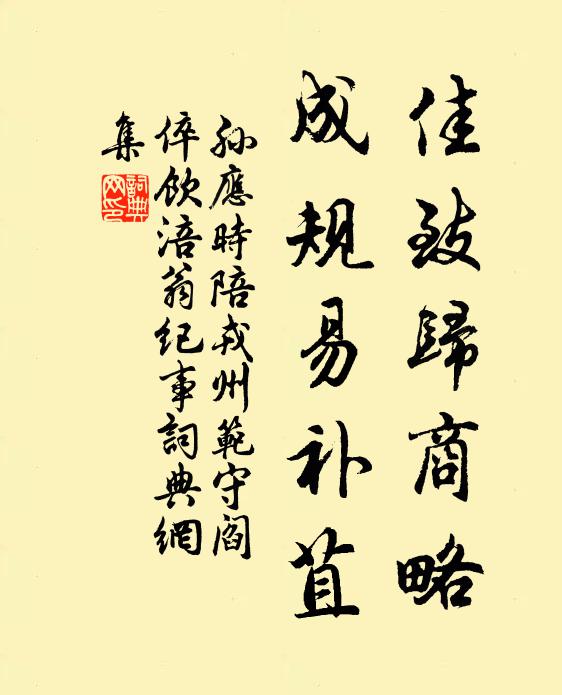 佳致歸商略
成規易补苴
孙應時陪戎州範守閻
倅飲涪翁纪事詞典網
集
詞典
网印